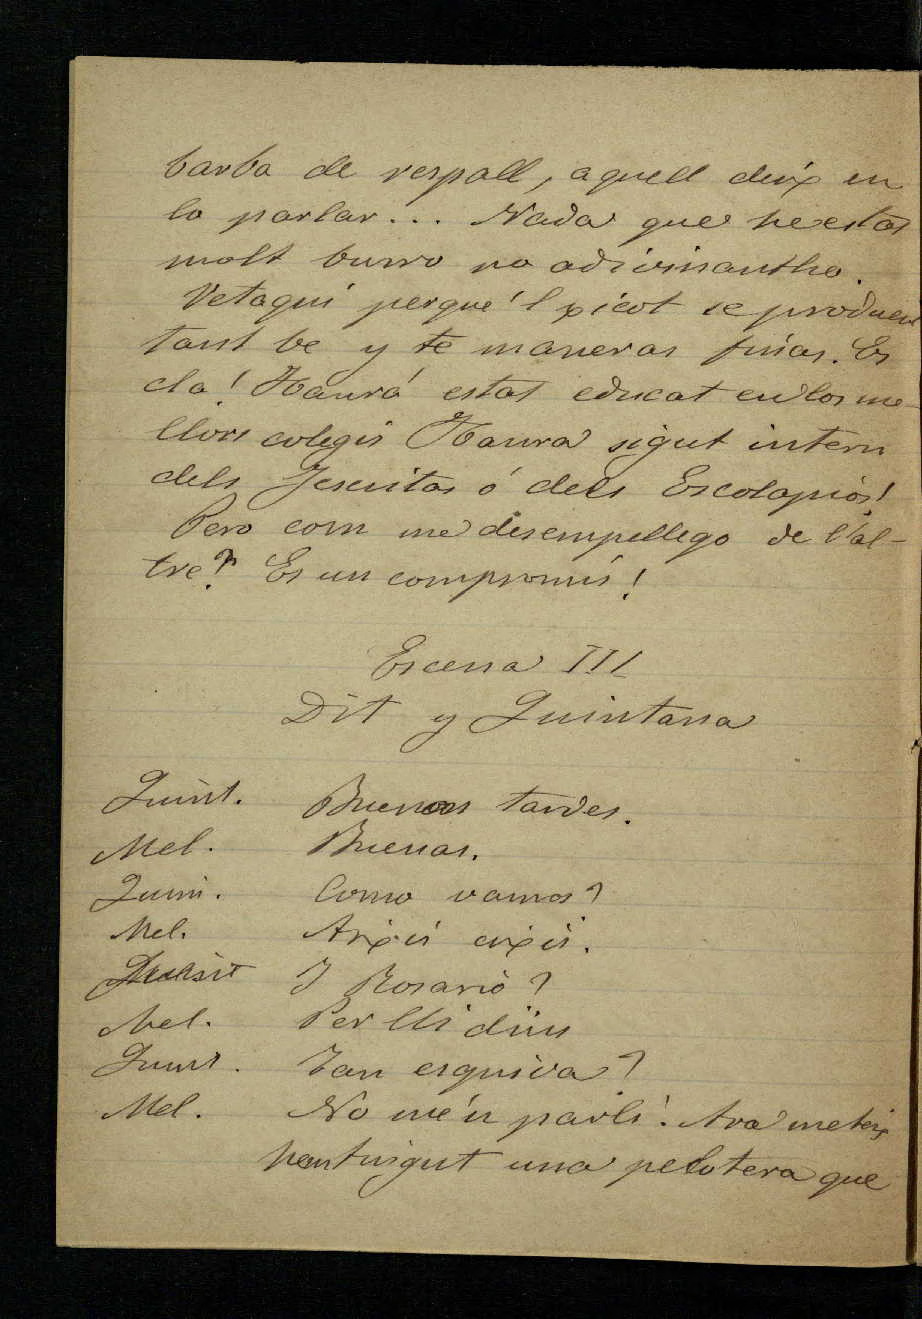 barba de respall, aquell deix en
lo parlar... Nada que he estat
molt burro no adivinantho.
Vetaqui perque'l picot se produeix
tant be y te maneras finas. Es
cla! Haurá estat educat en los me-
llors colegis Haura sigut intern
dels Jesuitas ó dels Escolapios!
Pero com me desempellego de l'al-
tre? Es un compromis!
Escena III
Dit y Quintana
Quint. Buenas tardes.
Mel. Buenas.
Quin. Como vamos?
Mel. Aixis aixis.
Quint Y Rosario?
Mel. Per lli dins
Quint. Tan esquiva?
Mel. No me'n parli. Ara mateix
hem tingut una pelotera que